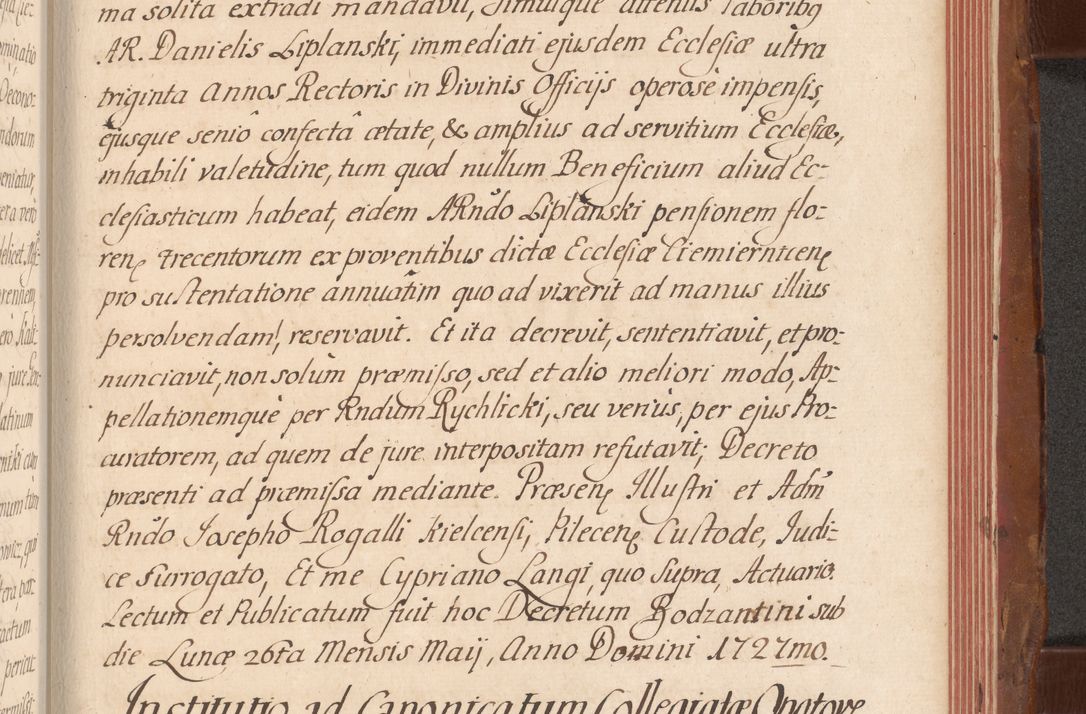 ma solita extradi mandavit, simulque attentis laboribq
AR. Danielis Liplanski, immediati ejusdem Ecclesiæ ultra
triginta Annos Rectoris in Divinis Officijs operose impensis,
ejusque seniô confectâ ætate, & amplius ad servitium Ecclesiæ,
inhabili valetudine, tum quod nullum Beneficium aliud Ec-
clesiasticum habeat, eidem ARndo Liplanski pensionem flo-
ren trecentorum ex proventibus dictæ Ecclesiæ
pro sustentatione annuatim quo ad vixerit ad manus illius
persolvendam, reservavit. Et ita decrevit, sententiavit, et pro-
nunciavit, non solùm præmisso, sed et alio meliori modo, Ap-
pellationemque per Rndum Rychlicki, seu verius, per ejus Pro-
curatorem, ad quem de jure interpositam refutavit; Decreto
præsenti ad præmissa mediante. Præsen Illustri et Adm
Rndo Josepho Rogalli Kielcensi, Pilecen Custode, Judi-
ce Surrogato, Et me Cypriano Langi, quo supra, Actuario.
Lectum et Publicatum fuit hoc Decretum Bodzantini sub
die Lunæ 26ta Mensis Maij, Anno Domini 1727mo.
Institutio ad Canonicatum Collegiatæ Opatove